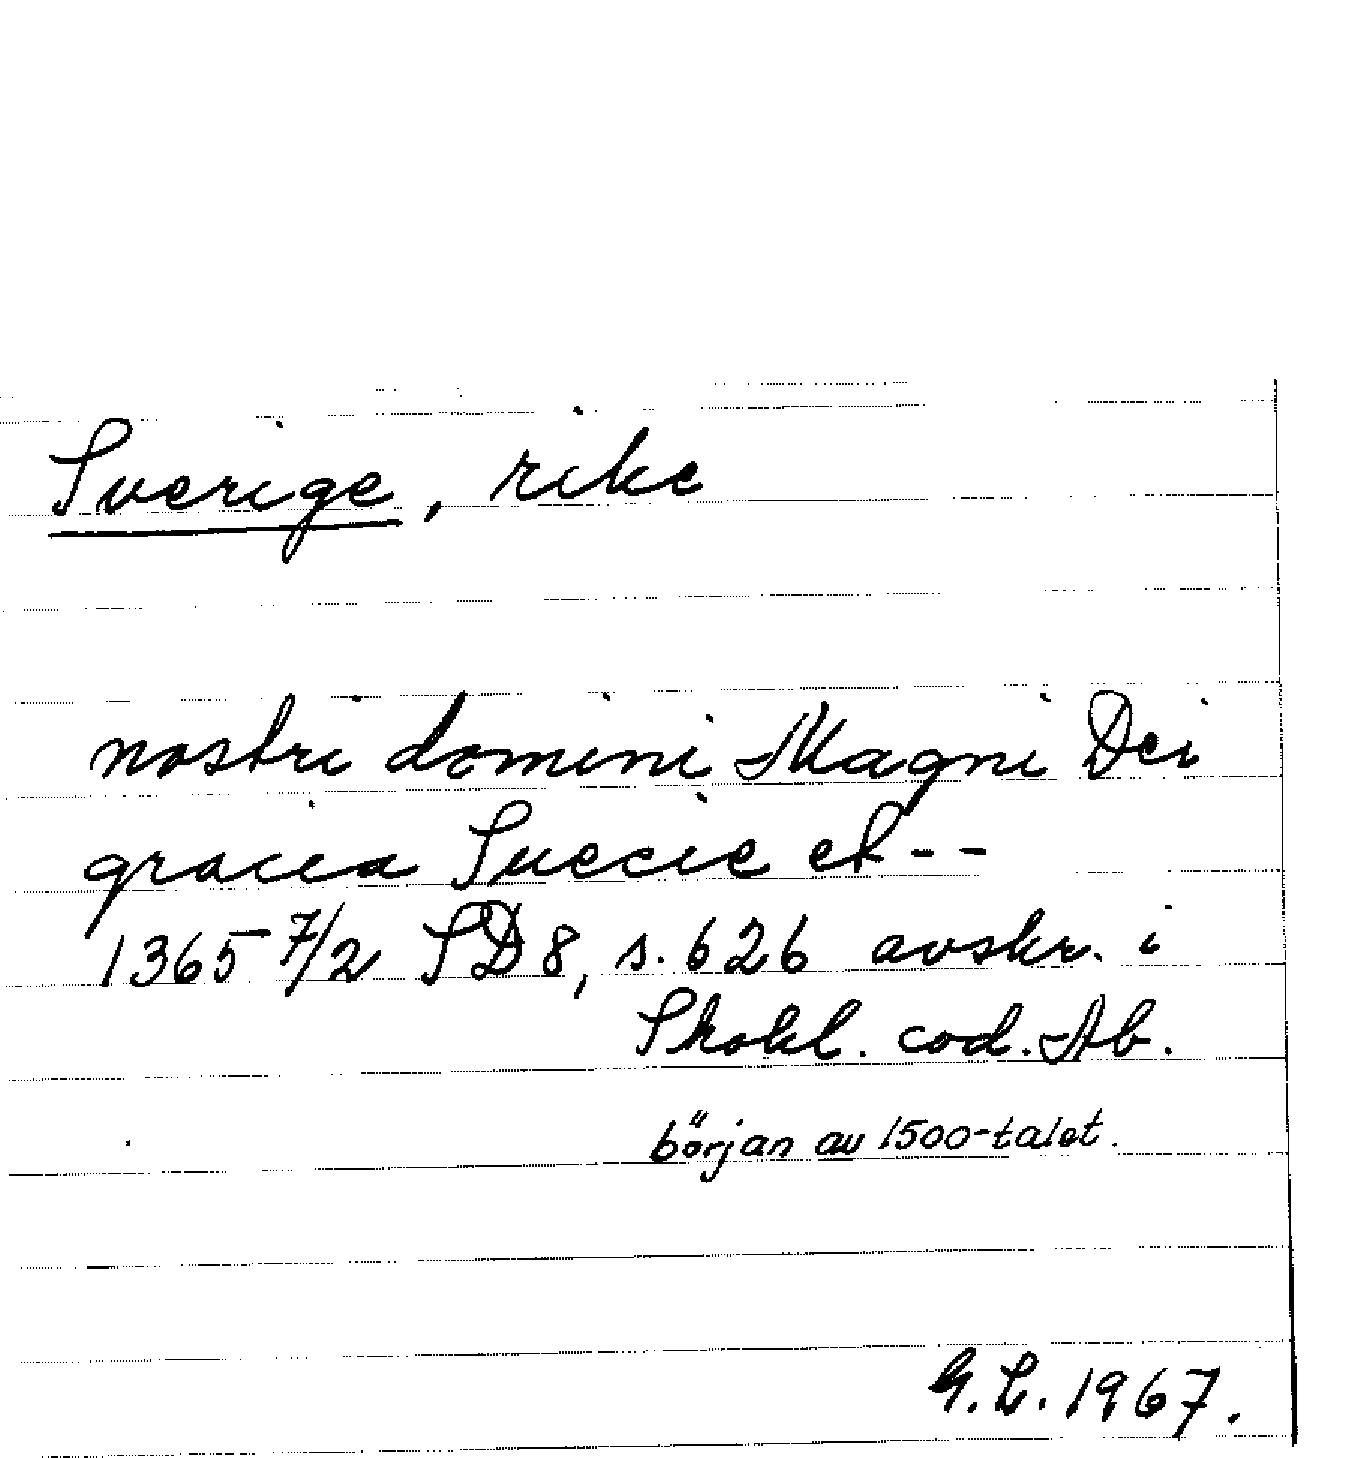 Sverige, rike
nostri domini Magni Dei
gracia Suecie et --
1365 7/2 SD 8, s. 626 avskr. i
Skokl. cod. Ab.
början av 1500-talet.
G. L. 1967.